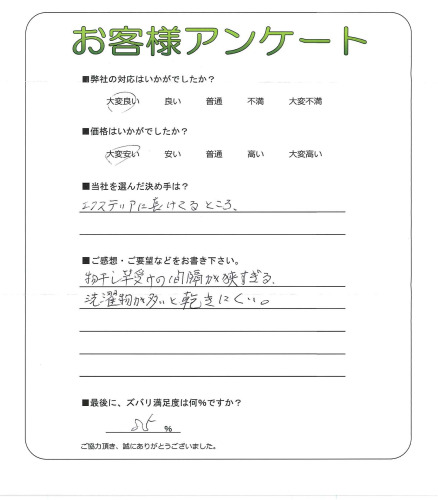 お客様アンケート
■弊社の対応はいかがでしたか？
大変良い 良い 普通 不満 大変不満
■価格はいかがでしたか？
大変安い 安い 普通 高い 大変高い
■当社を選んだ決め手は？
エクステリアに長けてるところ、
■ご感想・ご要望などをお書き下さい。
物干し竿受けの間隔が狭すぎる、
洗濯物が多いと乾きにくい。
■最後に、ズバリ満足度は何％ですか？
％
ご協力頂き、誠にありがとうございました。